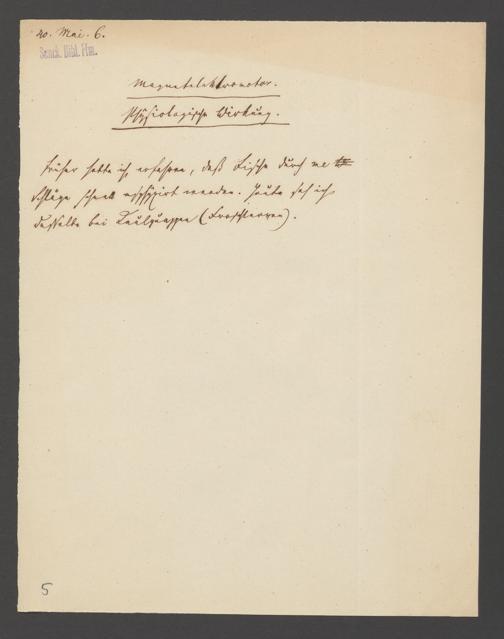 20. Mai. 6.
Senck. Bibl. Ffm.
Magnetelektromotor.
Physiologische Wirkung.
Früher hatte ich erfahren, daß Fische durch
Schläge schnell werden. Heute sah ich
dasselbe bei Kaulquappen (Froschlarven).
5